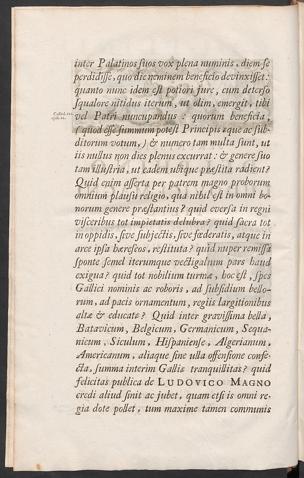 inter Palatinos suos vox plena numinis, diem se
perdidisse, quo die neminem beneficio devinxisset:
quanto nunc idem est potiori jure, cum deterso
squalore nitidus iterum, ut olim, emergit, tibi
vel Patri nuncupandus è quorum beneficia,
(quod esse summum potest Principis æque ac sub-
ditorum votum,) & numero tam multa sunt, ut
iis nullus non dies plenus excurrat: & genere suo
tam illustria, ut eadem ubique præstita radient?
Quid enim asserta per patrem magno proborum
omnium plausu religio, quâ nihil est in omni bo-
norum genere præstantius? quid eversa in regni
visceribus tot impietatis delubra? quid sacra tot
in oppidis, sive subjectis, sive fœderatis, atque in
arce ipsa hæreseos, restituta? quid nuper remissa
sponte semel iterumque vectigalium pars haud
exigua? quid tot nobilium turmæ, hoc est, spes
Gallici nominis ac roboris, ad subsidium bello-
rum, ad pacis ornamentum, regiis largitionibus
altæ & educatæ? Quid inter gravissima bella,
Batavicum, Belgicum, Germanicum, Sequa-
nicum, Siculum, Hispaniense, Algerianum,
Americanum, aliaque sine ulla offensione confe-
cta, summa interim Galliæ tranquillitas? quid
felicitas publica de LUDOVICO MAGNO
credi aliud sinit ac jubet, quam etsi is omni re-
gia dote pollet, tum maxime tamen communis